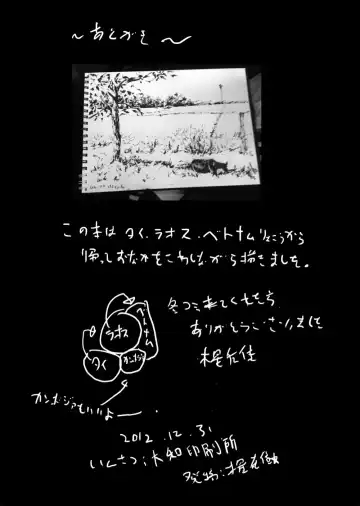 ～あとがき～
この本は タイ、ラオス、ベトナムりょこうから
帰っておなかをこわしながら描きました。
冬コミ来てくださり
ありがとうございました
ラオス
ベトナム
タイ
カンボジア
カンボジアもいいよー
2012.12.31
いんさつ：大知印刷所
発行：